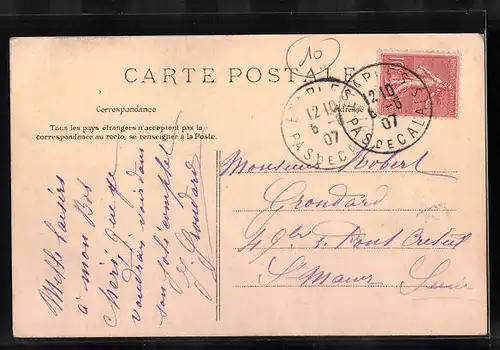 10
CARTE POSTALE
Correspondance
Adresse
Tous les pays étrangers n'acceptent pas la
correspondance au recto, se renseigner à la Poste.
ETAPLES
12 10
6 -6
07
PAS DE CALAIS
ETAPLES
12 10
6 -6
07
PAS DE CALAIS
10
Mille baisers
à mon
chéri que je
voudrais voir dans
son complet
Grondard
Monsieur Robert
Grondard
49 Pont Creteil
St Maur Seine